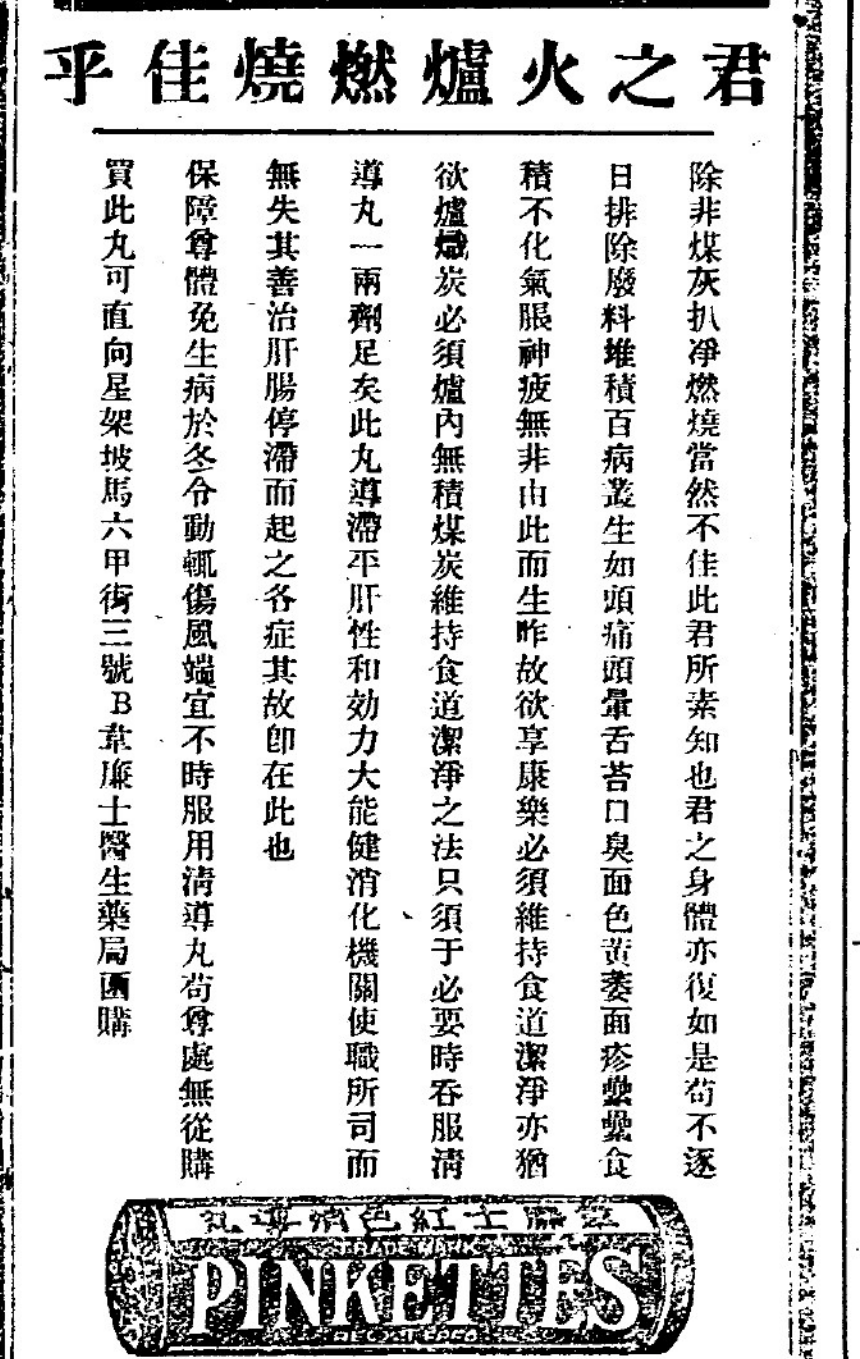 君之火爐燃燒佳乎
除非煤灰扒凈燃燒當然不佳此君所素知也君之身體亦復如是苟不逐
日排除廢料堆積百病叢生如頭痛頭暈舌苔口臭面色黃萎面疹纍纍食
積不化氣脹神疲無非由此而生咋故欲享康樂必須維持食道潔淨亦猶
欲爐熾炭必須爐內無積煤炭維持食道潔淨之法只須于必要時吞服清
導丸一兩劑足矣此丸導滯平肝性和効力大能健消化機關使職所司而
無失其善治肝腸停滯而起之各症其故卽在此也
保障尊體免生病於冬令動輒傷風端宜不時服用清導丸苟尊處無從購
買此丸可直向星架坡馬六甲街三號B韋廉士醫生藥局函購
韋廉士紅色清導丸
TRADE MARK
PINKETTES